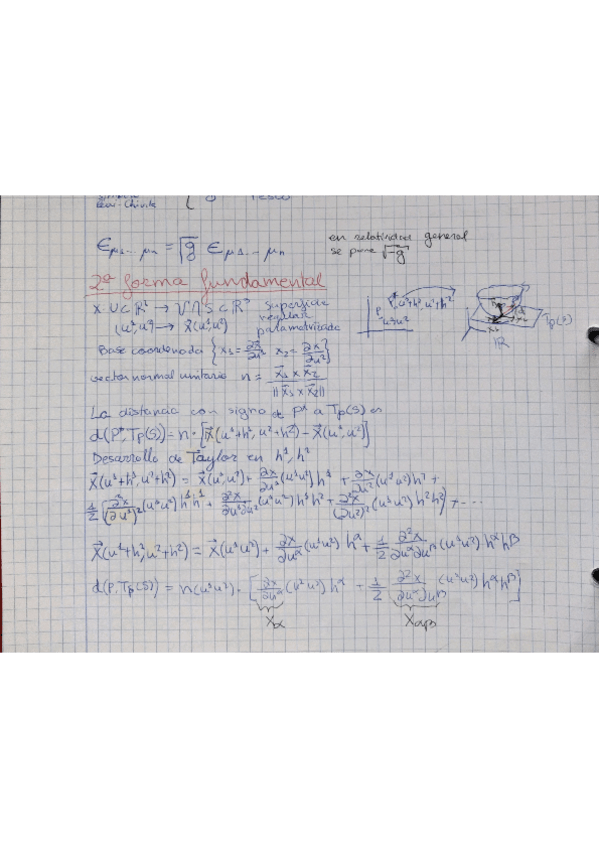 Levi-Chivita
ϵμ1...μn = √g ϵμ1...μn en relatividad general
se pone √-g
2ª forma fundamental
X: U⊂R² → V∩S⊂R³ superficie
regular
(u¹,u²) → x⃗(u¹,u²) parametrizada
P u¹u²
P* u¹+h¹, u²+h²
Tp(S)
Base coordenada {x₁=∂x⃗/∂u¹ x₂=∂x⃗/∂u²}
vector normal unitario n = x⃗₁ × x⃗₂ / ||x⃗₁ × x⃗₂||
La distancia con signo de P* a Tp(S) es
d(P*,Tp(S)) = n·[x⃗(u¹+h¹, u²+h²) - x⃗(u¹,u²)]
Desarrollo de Taylor en h¹, h²
x⃗(u¹+h¹, u²+h²) = x⃗(u¹,u²) + ∂x/∂u¹ (u¹u²) h¹ + ∂x/∂u² (u¹u²) h² +
1/2 (∂²x/(∂u¹)² (u¹u²) h¹h¹ + ∂²x/∂u¹∂u² (u¹u²) h¹h² + ∂²x/(∂u²)² (u¹u²) h²h²) + ...
x⃗(u¹+h¹, u²+h²) = x⃗(u¹u²) + ∂x/∂uα (u¹u²) hα + 1/2 ∂²x/∂uα∂uβ (u¹u²) hαhβ
d(P,Tp(S)) = n(u¹u²) · [∂x/∂uα (u¹u²) hα + 1/2 ∂²x/∂uα∂uβ (u¹u²) hαhβ]
Xα Xαβ